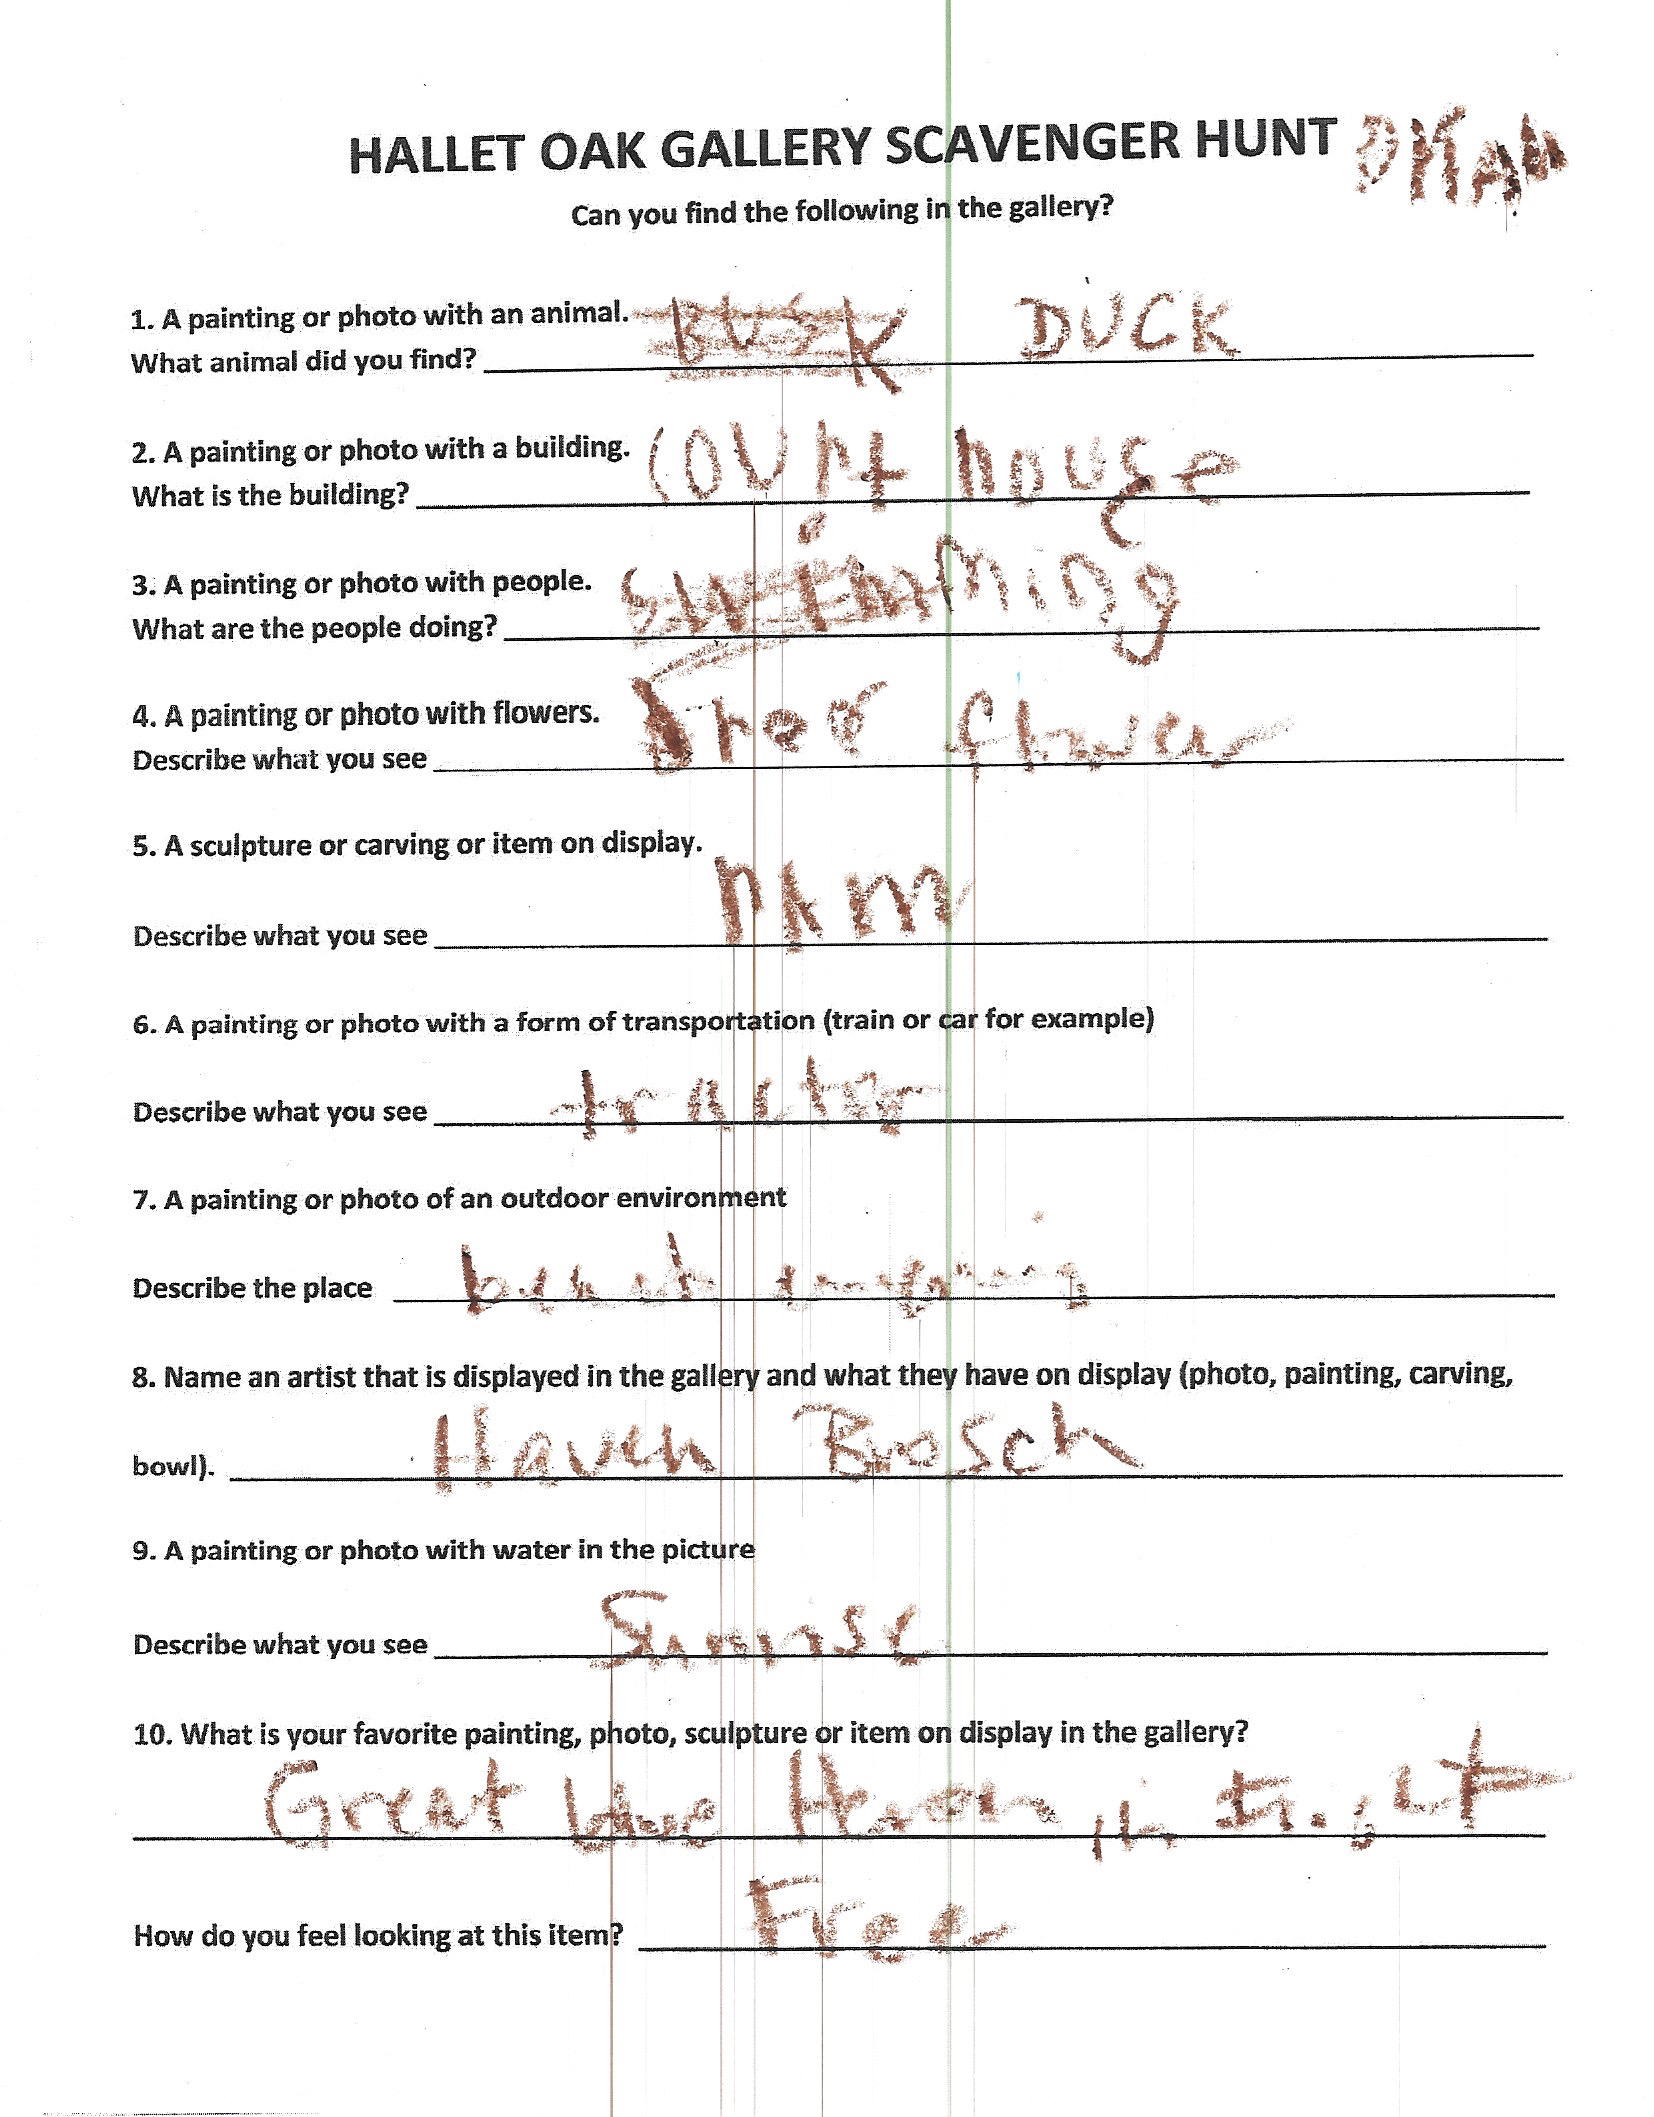 HALLET OAK GALLERY SCAVENGER HUNT
Can you find the following in the gallery?
1. A painting or photo with an animal.
What animal did you find? DUCK
2. A painting or photo with a building.
What is the building? COURt house
3. A painting or photo with people. Swimming
What are the people doing?
4. A painting or photo with flowers.
Describe what you see flower
5. A sculpture or carving or item on display.
Describe what you see
6. A painting or photo with a form of transportation (train or car for example)
Describe what you see tractor
7. A painting or photo of an outdoor environment
Describe the place
8. Name an artist that is displayed in the gallery and what they have on display (photo, painting, carving,
bowl). Haven Brosch
9. A painting or photo with water in the picture
Describe what you see Sunrise
10. What is your favorite painting, photo, sculpture or item on display in the gallery?
Great blue Heron in
How do you feel looking at this item? Free